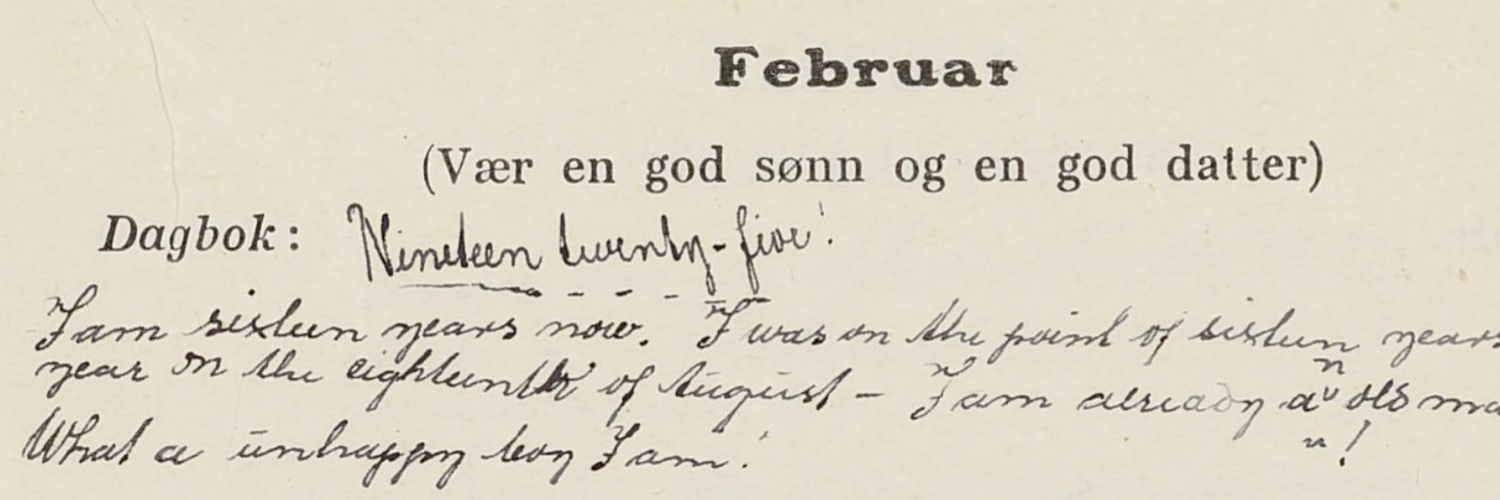 Februar
(Vær en god sønn og en god datter)
Dagbok: Nineteen twenty-five!
I am sixteen years now. I was on the point of sixteen years
year on the eighteenth of August – I am already an old ma
What a unhappy boy I am!